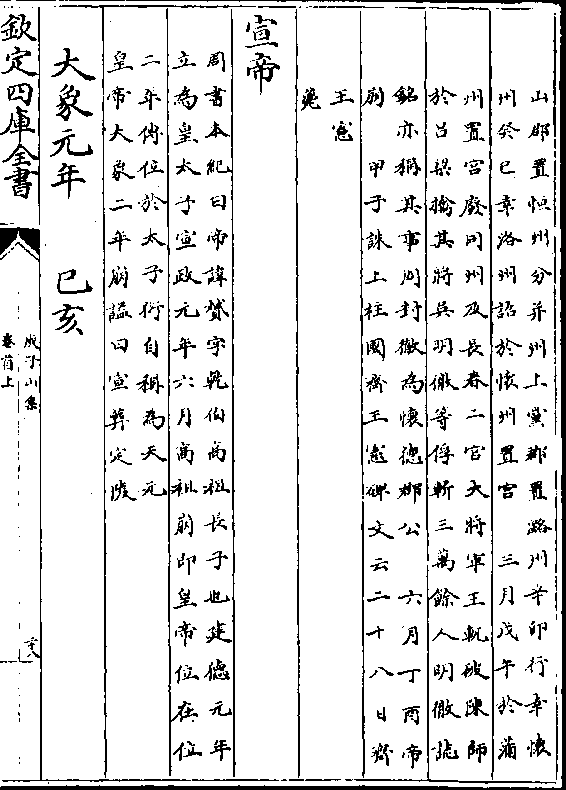 山郡置恒州分并州上黨郡置潞州辛卯行幸懷
州癸巳幸洛州詔於懷州置宮　三月戊午於蒲
州置宮廢同州及長春二宮大將軍王軌破陳師
於呂梁擒其將吳明徹等俘斬三萬餘人明徹誌
銘亦稱其事周封徹為懷德郡公　六月丁酉帝
崩　甲子誅上柱國齊王憲碑文云二十八日齊
王憲
薨
宣帝
周書本紀曰帝諱贇字乾伯高祖長子也建德元年
立為皇太子宣政元年六月高祖崩即皇帝位在位
二年傳位於太子衍自稱為天元
皇帝大象二年崩諡曰宣葬定陵
大象元年　己亥
欽定四庫全書
庾子山集
卷首上
二十八